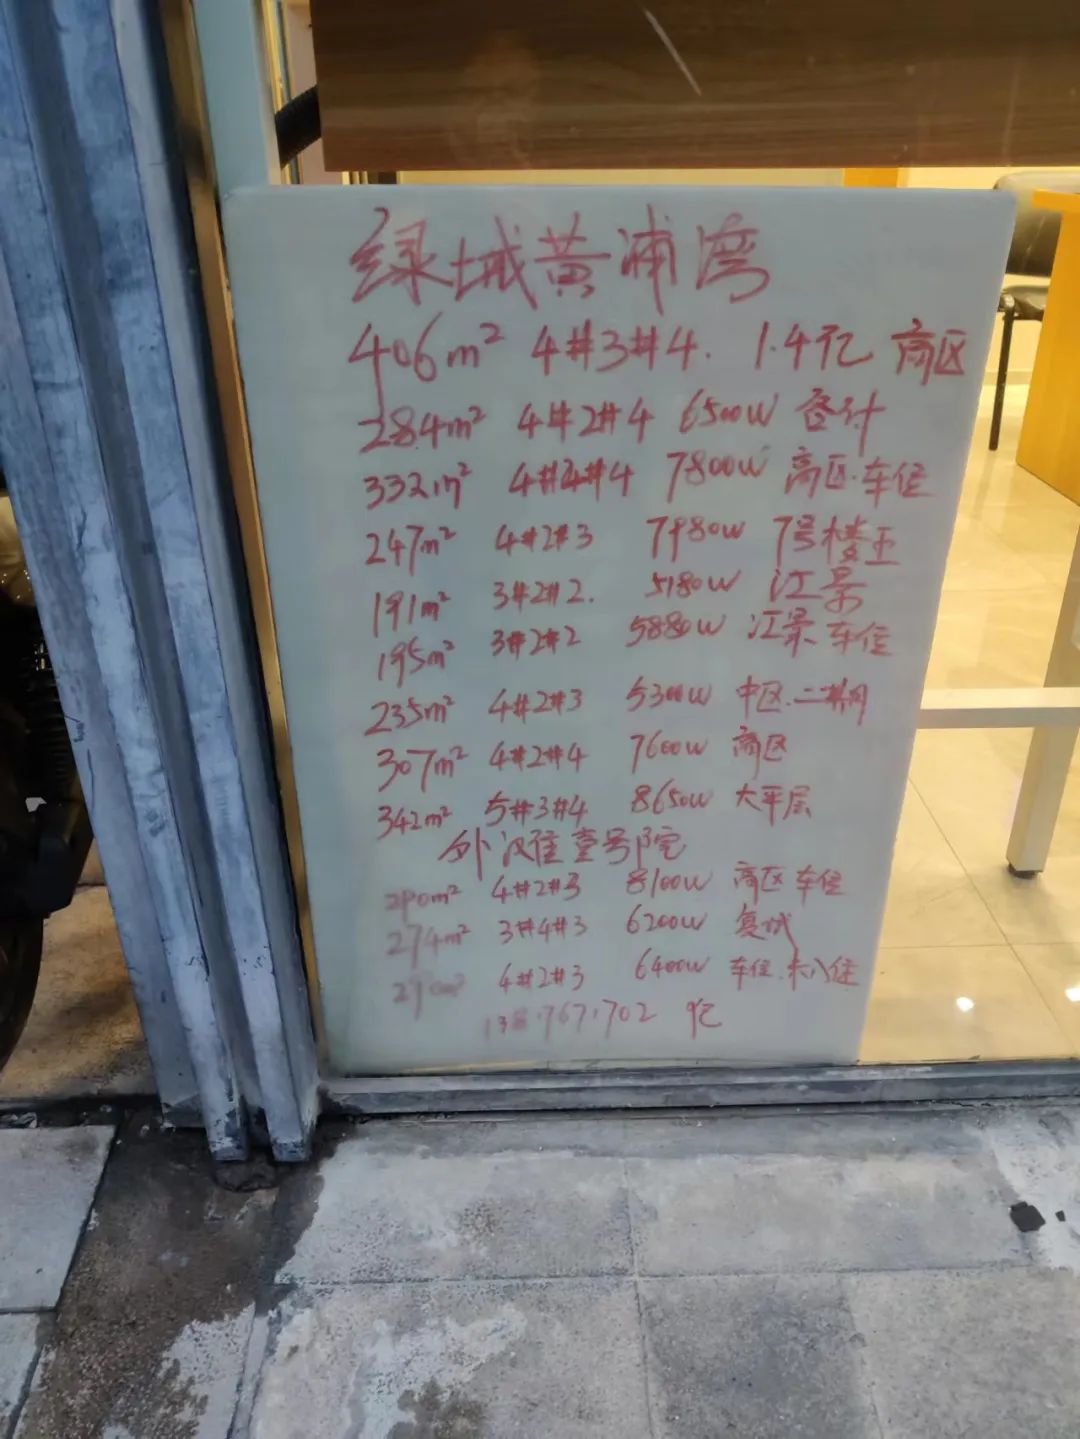 绿城黄浦湾
406m² 4#3#4. 1.4亿 高区
284m² 4#2#4 6500W 各付
332m² 4#4#4 7800W 高区.车位
247m² 4#2#3 7980W 7号楼王
191m² 3#2#2. 5180W 江景
195m² 3#2#2 5880W 江景.车位
235m² 4#2#3 5300W 中区.二梯
307m² 4#2#4 7600W 高区
342m² 5#3#4 8650W 大平层
外滩壹号院
290m² 4#2#3 8100W 高区 车位
274m² 3#4#3 6200W 复式
290m² 4#2#3 6400W 车位.未入住